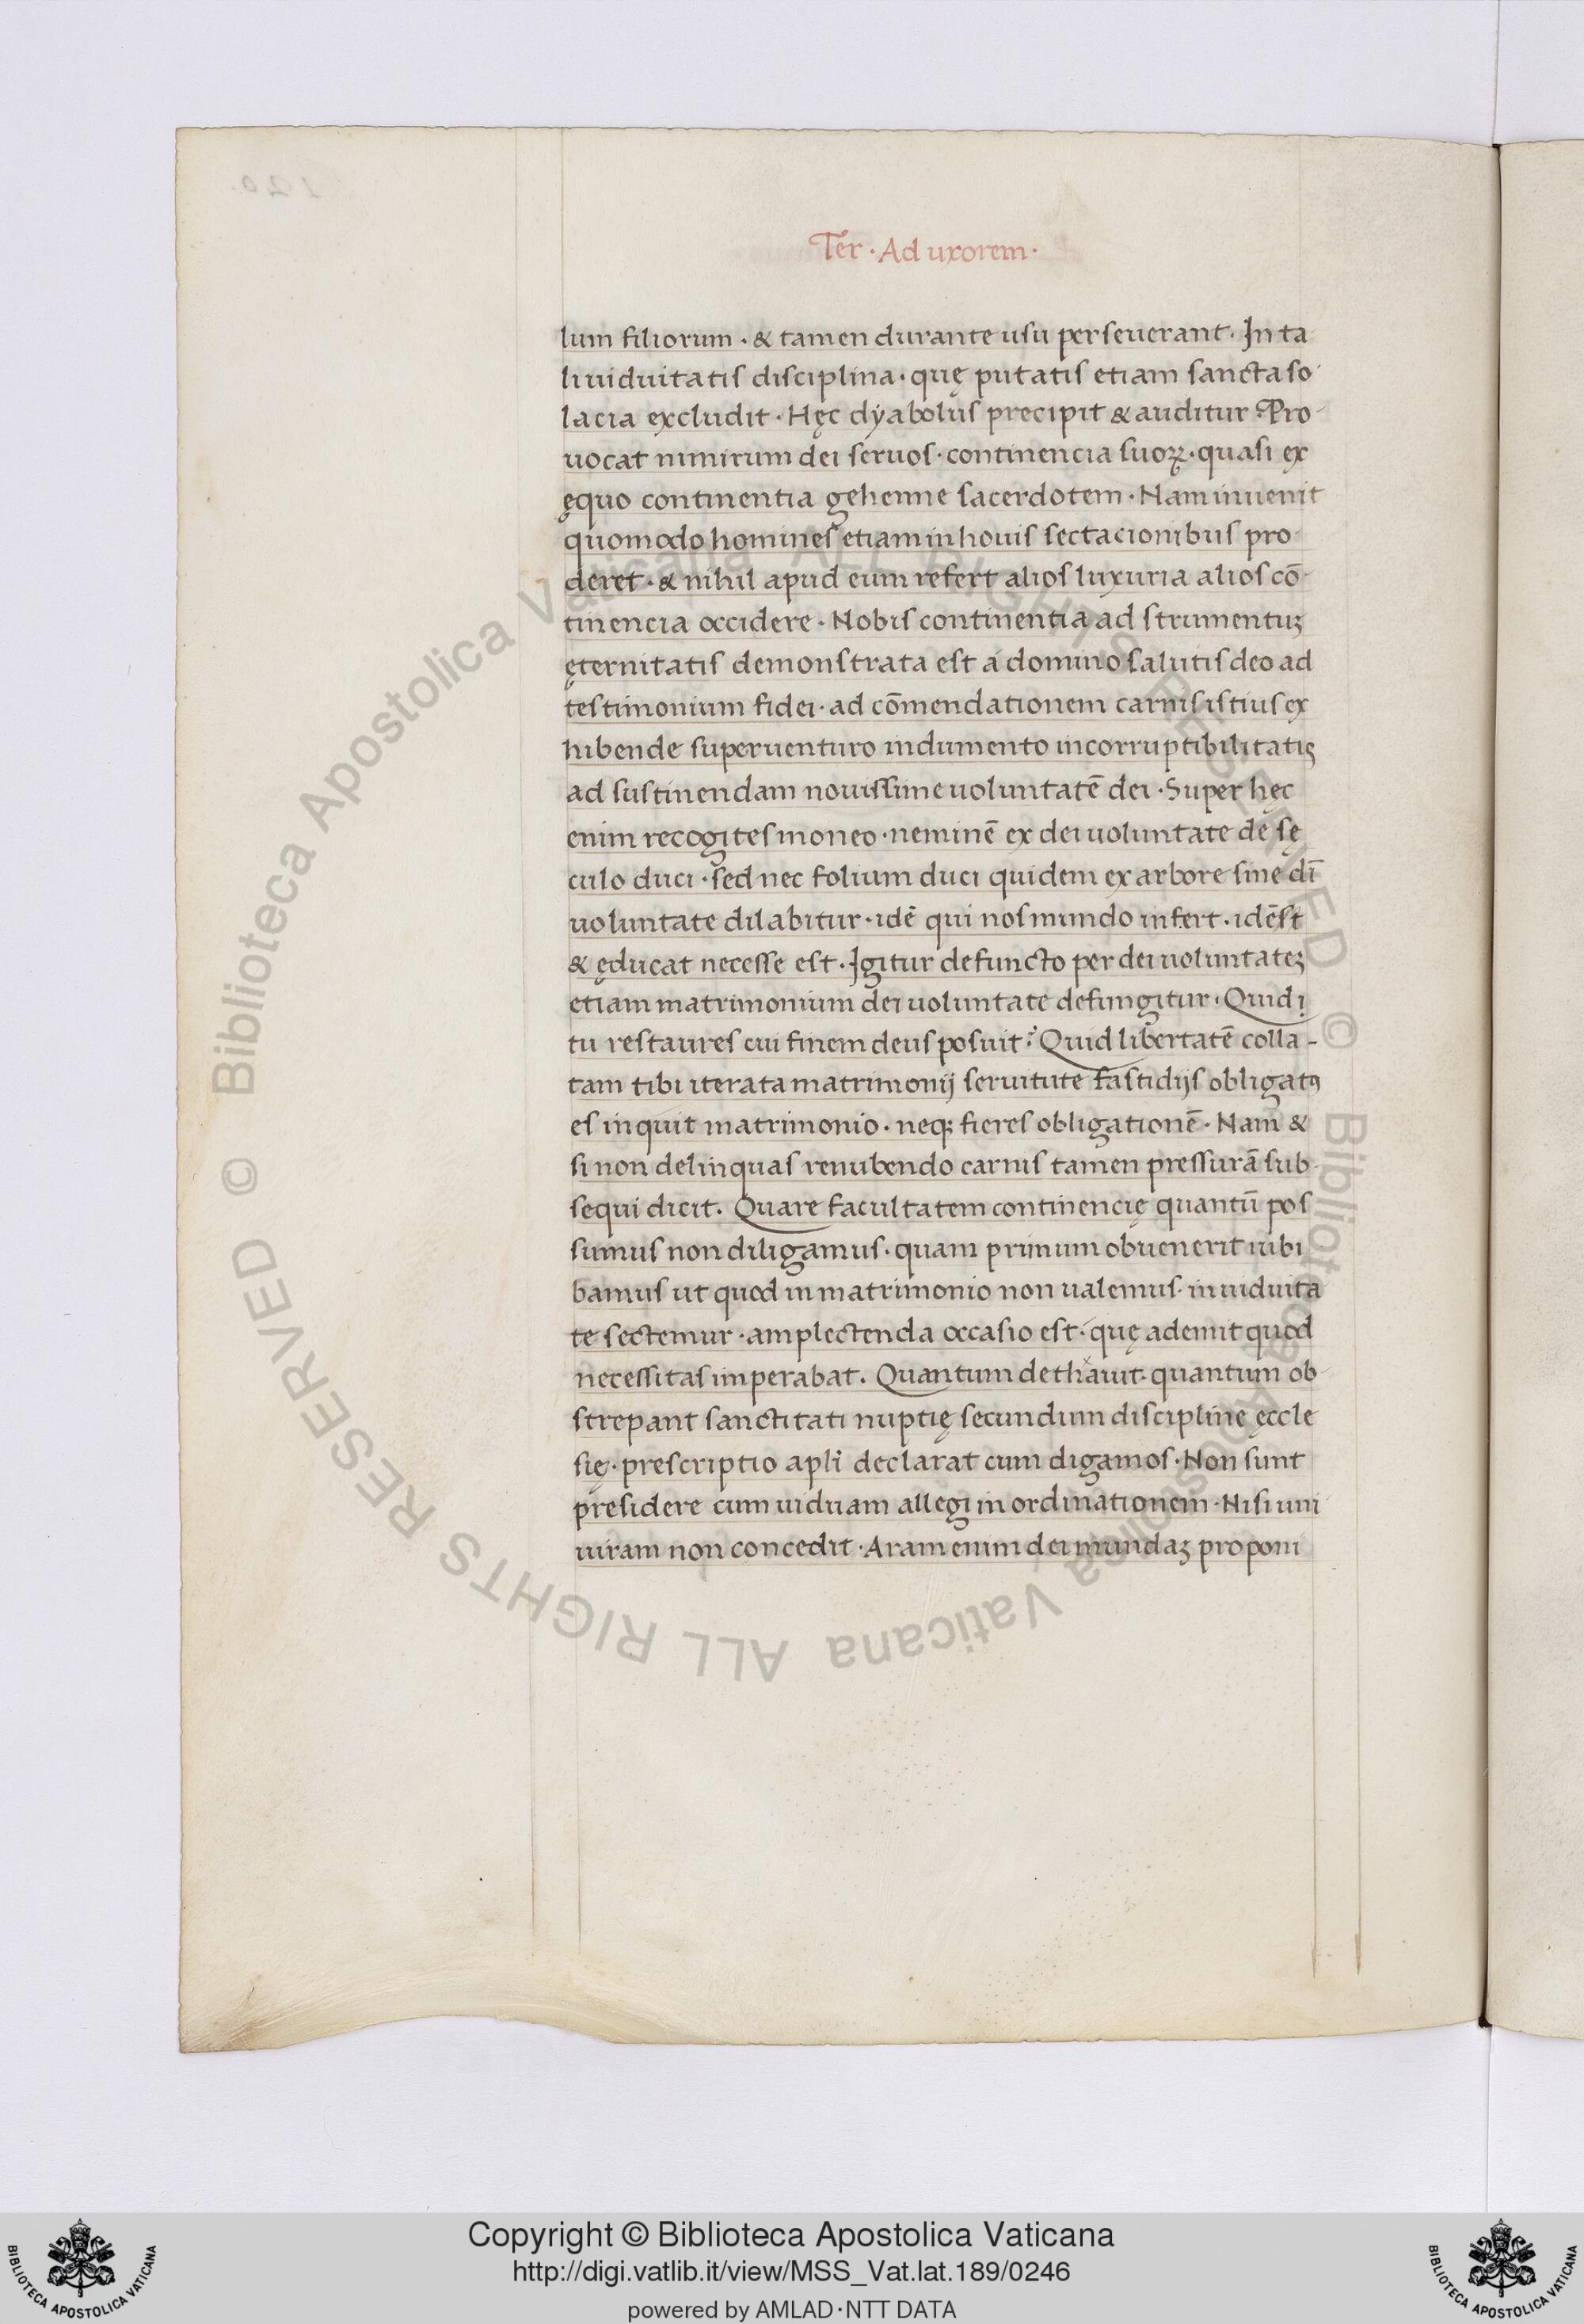 Ter · Ad uxorem ·
lum filiorum · & tamen durante usu perseuerant · In ta
li uiduitatis disciplina · quę putatis etiam sancta so
lacia excludit · Hęc dyabolus precipit & auditur Pro-
uocat nimirum dei seruos · continencia suoꝝ · quasi ex
ęquo continentia gehenne sacerdotem · Nam inuenit
quomodo homines etiam in houis sectacionibus pro-
deret · & nihil apud eum refert alios luxuria alios cō-
tinencia occidere · Nobis continentia ad strumentuꝫ
ęternitatis demonstrata est á domino salutis deo ad
testimonium fidei · ad cōmendationem carnis istius ex
hibende superuenturo indumento incorruptibilitatis
ad sustinendam nouissime uoluntatē dei · Super hęc
enim recogites moneo · neminē ex dei uoluntate de sę
culo duci · sed nec folium duci quidem ex arbore sine dī
uoluntate dilabitur · idē qui nos mundo infert · idēst
& ęducat necesse est · Igitur defuncto per dei uoluntateꝫ
etiam matrimonium dei uoluntate defungitur · Quid i
tu restaures cui finem deus posuit? Quid libertatē colla-
tam tibi iterata matrimonij seruitute fastidijs obligatꝰ
es inquit matrimonio · neqꝫ fieres obligationē · Nam &
si non delinquas renubendo carnis tamen pressurā sub-
sequi dicit. Quare facultatem continencię quantū pos
sumus non diligamus · quam primum obuenerit iubi
bamus ut quod in matrimonio non ualemus · in uiduita
te sectemur · amplectenda occasio est · quę ademit quod
necessitas imperabat. Quantum dethauit · quantum ob-
strepant sanctitati nuptię secundum discipline ęccle
się · prescriptio apłi declarat cum digamos · Non sunt
presidere cum uiduam allegi in ordinationem · Nisi uni
uiram non concedit · Aram enim dei mundaꝫ proponi
© Biblioteca Apostolica Vaticana ALL RIGHTS RESERVED © Biblioteca Apostolica Vaticana ALL RIGHTS RESERVED
Copyright © Biblioteca Apostolica Vaticana
http://digi.vatlib.it/view/MSS_Vat.lat.189/0246
powered by AMLAD·NTT DATA
BIBLIOTECA APOSTOLICA VATICANA
BIBLIOTECA APOSTOLICA VATICANA